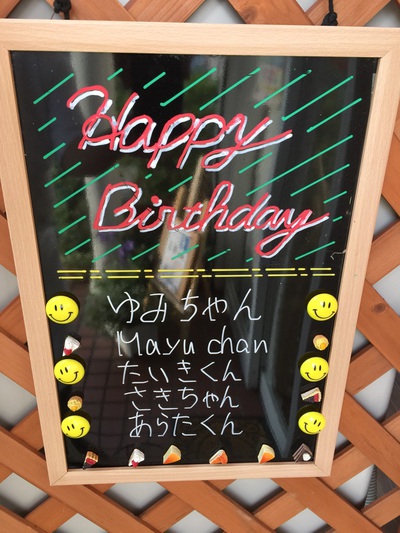 Happy
Birthday
ゆみちゃん
Mayu chan
たいきくん
さきちゃん
あらたくん